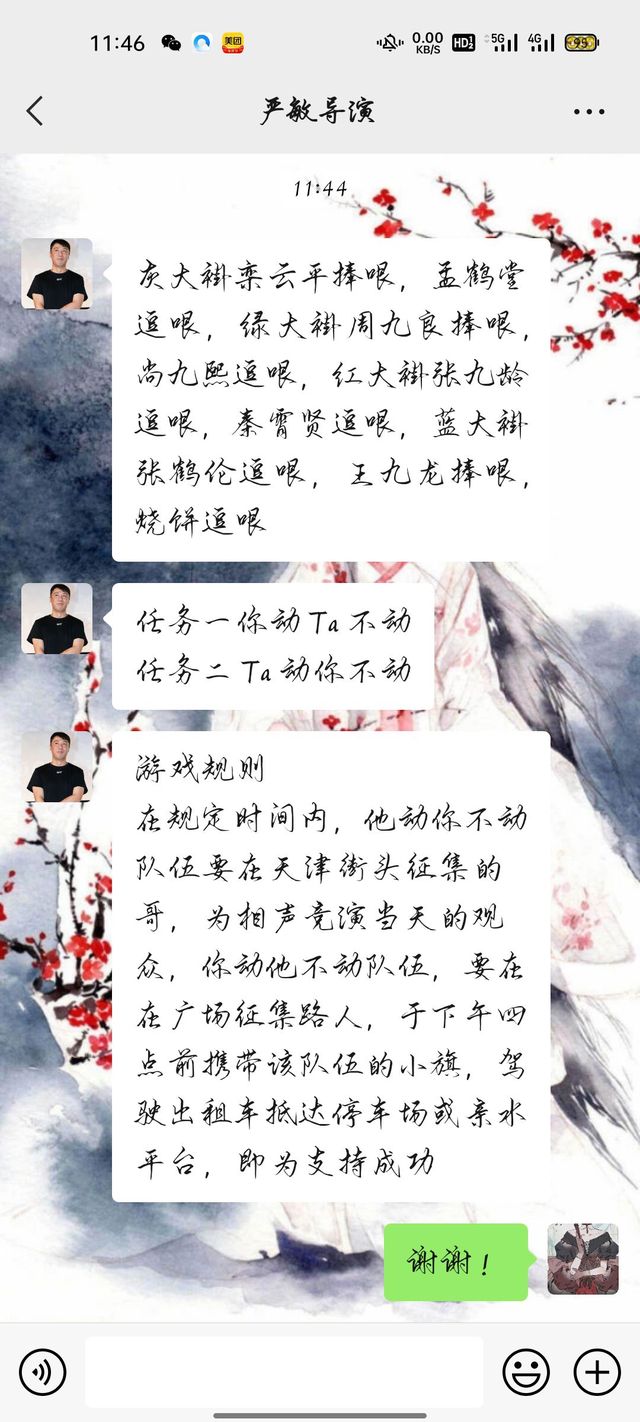 11:46
美团
0.00
KB/S
HD2
5G
4G
99
严敏导演
11:44
灰大褂栾云平捧哏，孟鹤堂
逗哏，绿大褂周九良捧哏，
尚九熙逗哏，红大褂张九龄
逗哏，秦霄贤逗哏，蓝大褂
张鹤伦逗哏，王九龙捧哏，
烧饼逗哏
任务一你动Ta不动
任务二Ta动你不动
游戏规则
在规定时间内，他动你不动
队伍要在天津街头征集的
哥，为相声竞演当天的观
众，你动他不动队伍，要在
在广场征集路人，于下午四
点前携带该队伍的小旗，驾
驶出租车抵达停车场或亲水
平台，即为支持成功
谢谢！